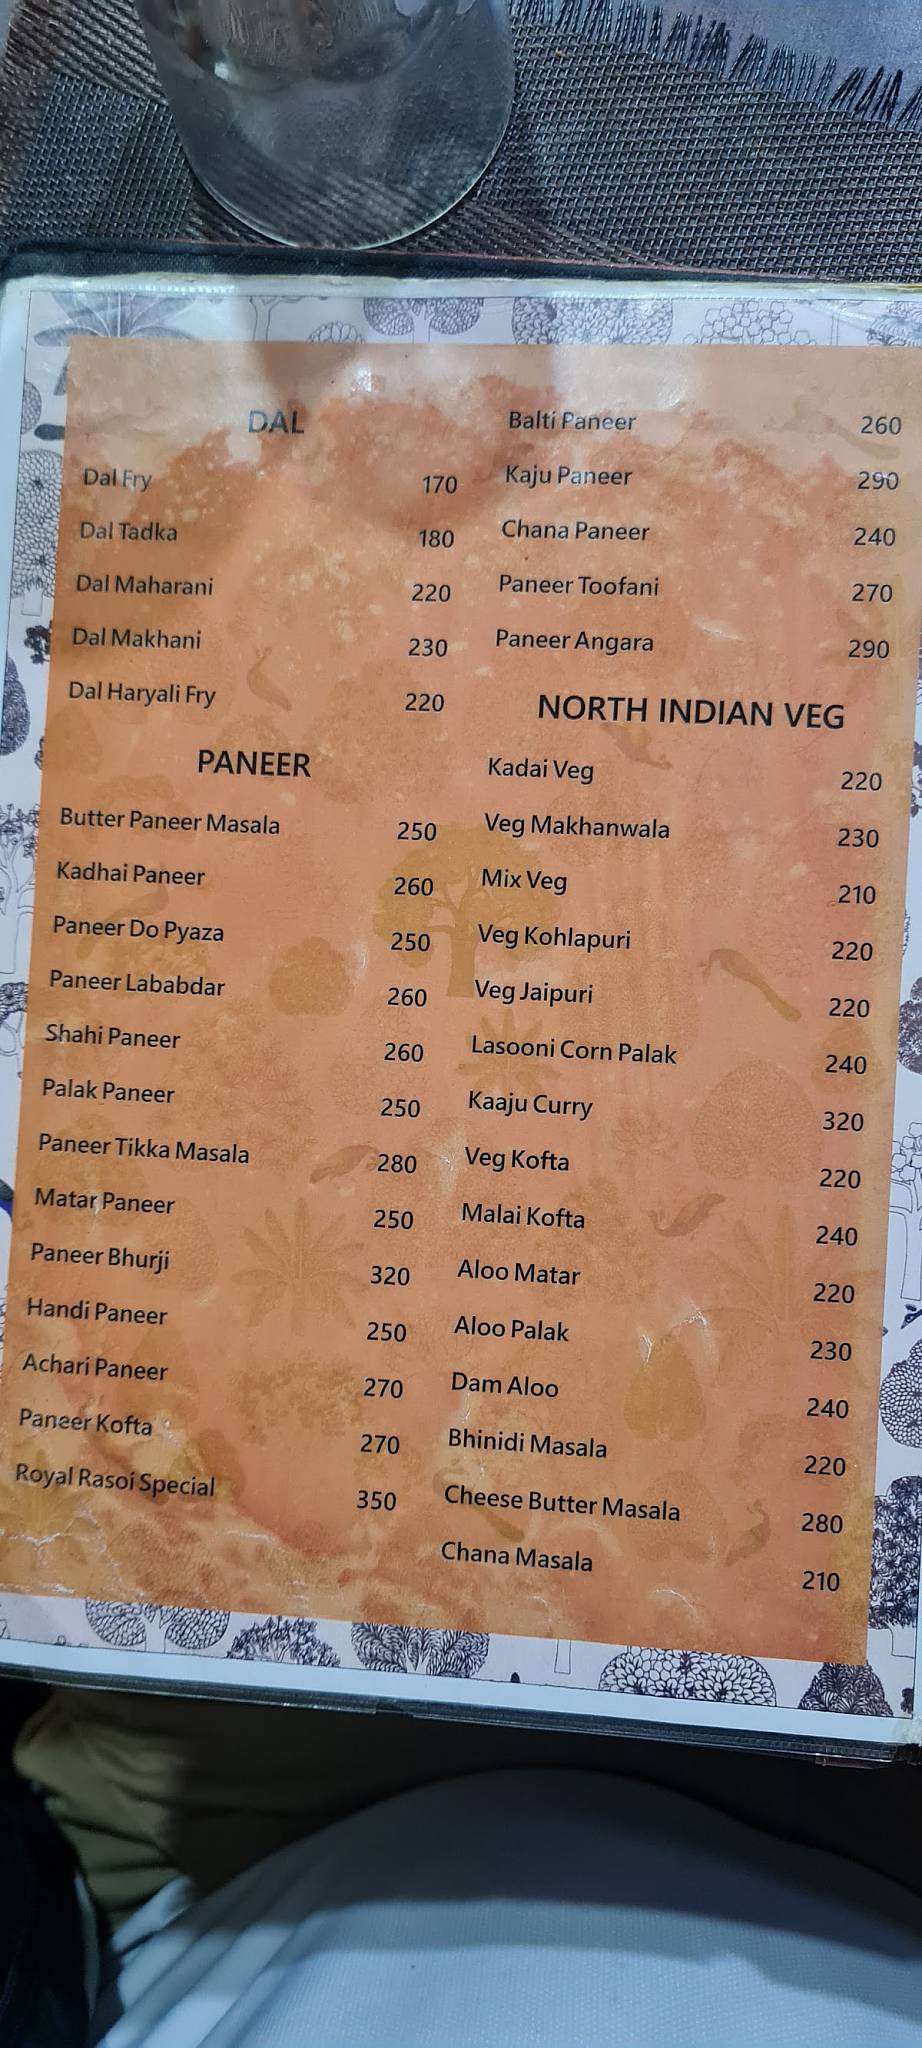 DAL
Dal Fry 170
Dal Tadka 180
Dal Maharani 220
Dal Makhani 230
Dal Haryali Fry 220
PANEER
Butter Paneer Masala 250
Kadhai Paneer 260
Paneer Do Pyaza 250
Paneer Lababdar 260
Shahi Paneer 260
Palak Paneer 250
Paneer Tikka Masala 280
Matar Paneer 250
Paneer Bhurji 320
Handi Paneer 250
Achari Paneer 270
Paneer Kofta 270
Royal Rasoi Special 350
Balti Paneer 260
Kaju Paneer 290
Chana Paneer 240
Paneer Toofani 270
Paneer Angara 290
NORTH INDIAN VEG
Kadai Veg 220
Veg Makhanwala 230
Mix Veg 210
Veg Kohlapuri 220
Veg Jaipuri 220
Lasooni Corn Palak 240
Kaaju Curry 320
Veg Kofta 220
Malai Kofta 240
Aloo Matar 220
Aloo Palak 230
Dam Aloo 240
Bhinidi Masala 220
Cheese Butter Masala 280
Chana Masala 210